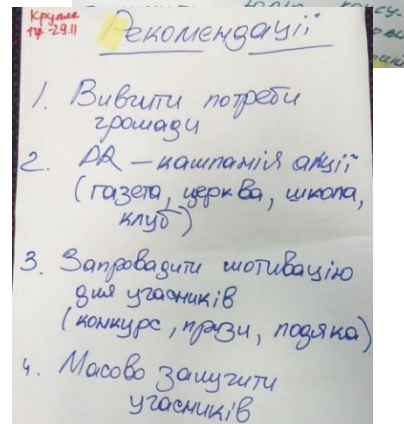 Рекомендації
1. Вивчити потреби
громади
2. PR – кампанія акції
(газета, церква, школа,
клуб)
3. Запровадити мотивацію
для учасників
(конкурс, призи, подяка)
4. Масово залучити
учасників